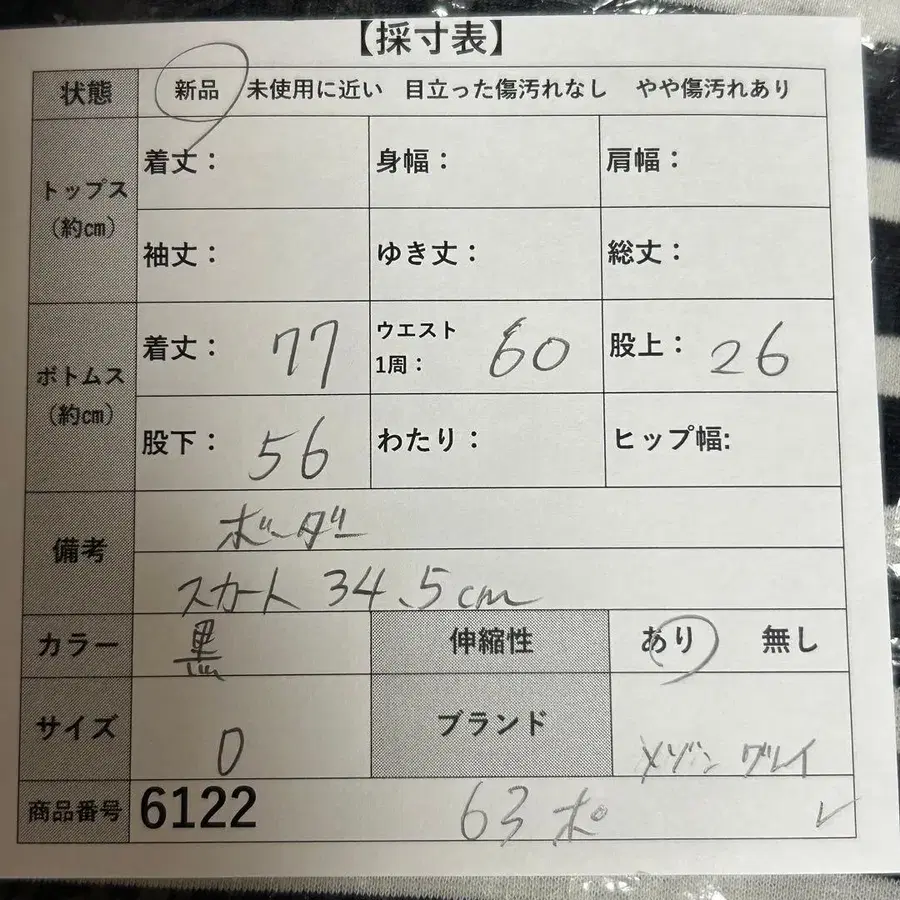 【採寸表】
状態 新品 未使用に近い 目立った傷汚れなし やや傷汚れあり
トップス (約cm)
着丈： 身幅： 肩幅：
袖丈： ゆき丈： 総丈：
ボトムス (約cm)
着丈： 77 ウエスト 1周： 60 股上： 26
股下： 56 わたり： ヒップ幅:
備考
ボーダー
スカート 34.5cm
カラー 黒 伸縮性 あり 無し
サイズ 0 ブランド メゾン グレイ
商品番号 6122 63 ポ